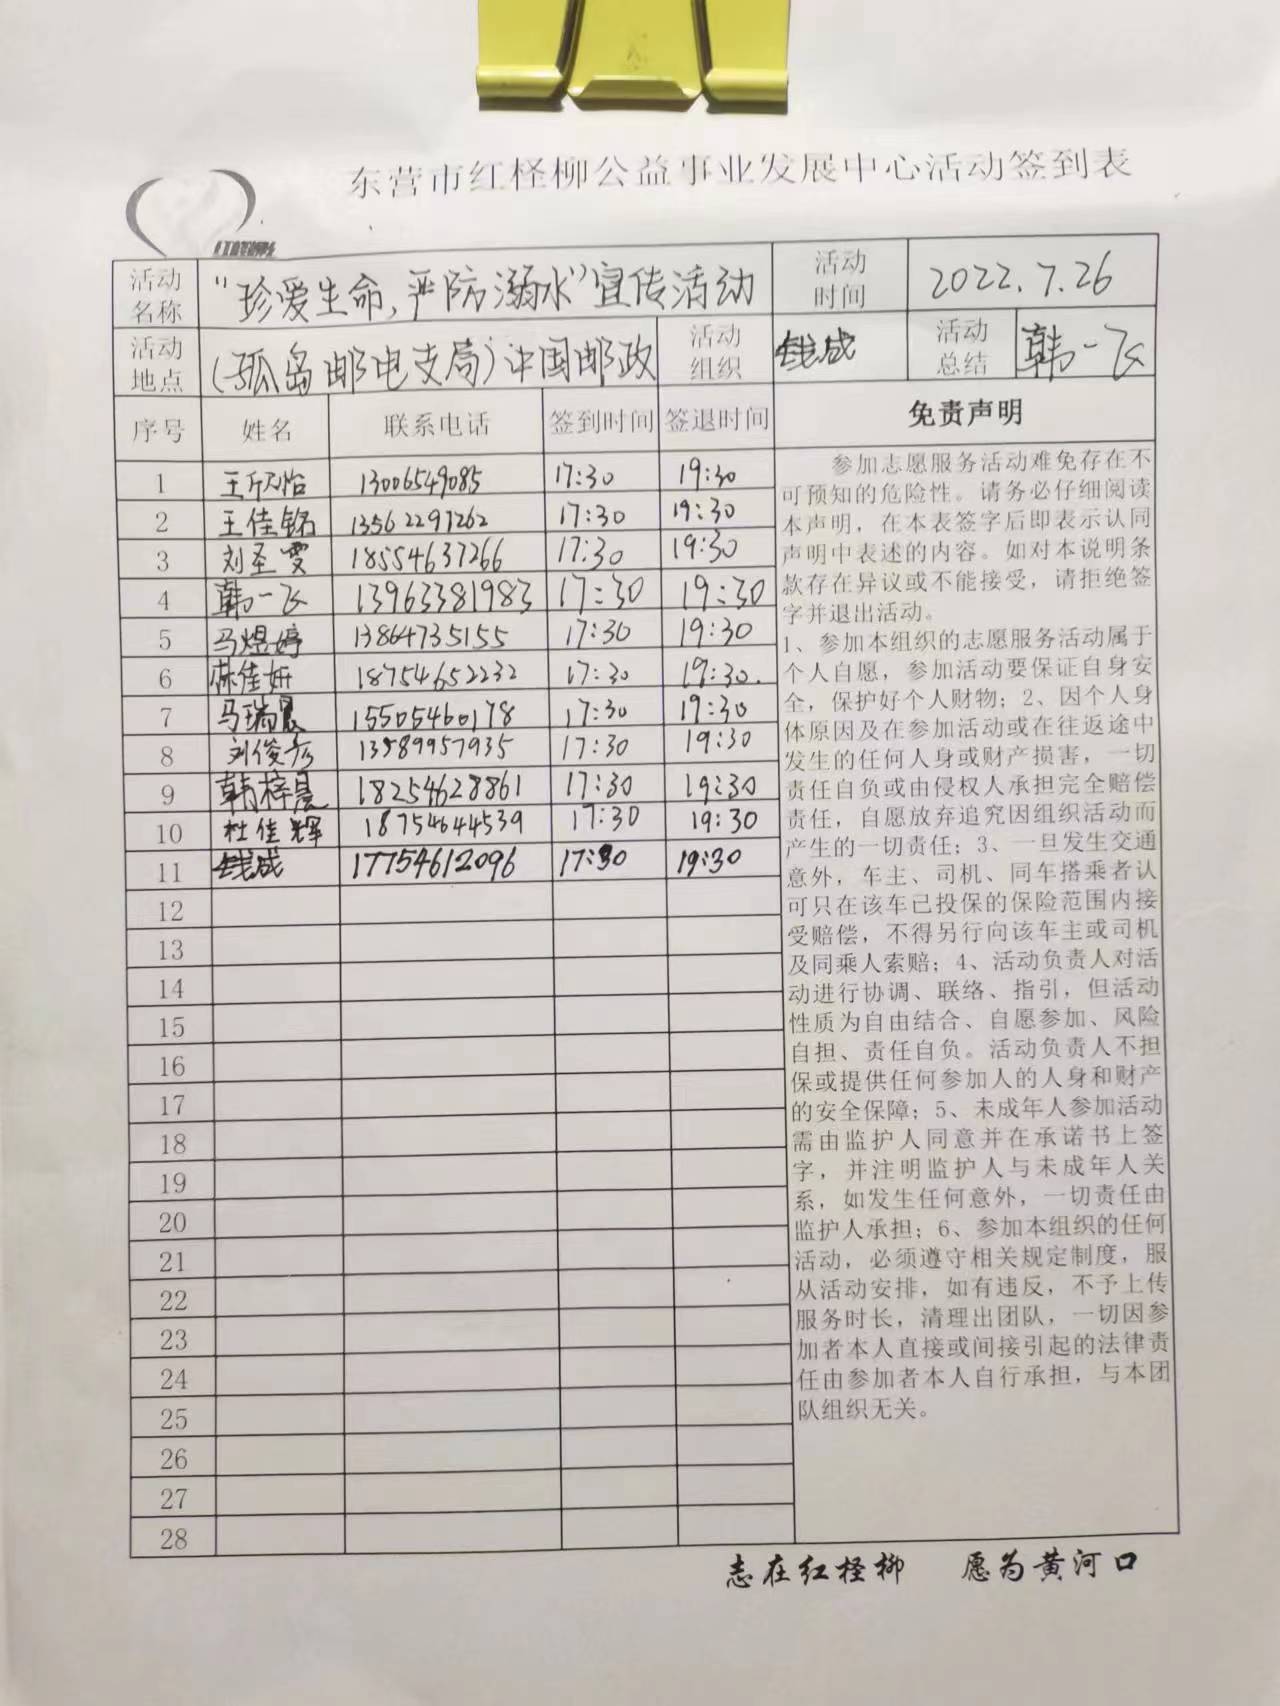 东营市红柽柳公益事业发展中心活动签到表
活动名称 “珍爱生命,严防溺水”宣传活动 活动时间 2022.7.26
活动地点 (孤岛邮电支局)中国邮政 活动组织 钱成 活动总结 韩一飞
序号 姓名 联系电话 签到时间 签退时间 免责声明
1 13006549085 17:30 19:30
2 王佳铭 13562297262 17:30 19:30
3 刘圣雯 18554637266 17:30 19:30
4 韩一飞 13963381983 17:30 19:30
5 马煜婷 13864735155 17:30 19:30
6 麻佳妍 18754652232 17:30 19:30.
7 马瑞晨 15505460178 17:30 19:30
8 刘俊彦 13589957935 17:30 19:30
9 韩梓晨 18254628861 17:30 19:30
10 杜佳辉 18754644539 17:30 19:30
11 钱成 17754612096 17:30 19:30
12
13
14
15
16
17
18
19
20
21
22
23
24
25
26
27
28
参加志愿服务活动难免存在不
可预知的危险性。请务必仔细阅读
本声明，在本表签字后即表示认同
声明中表述的内容。如对本说明条
款存在异议或不能接受，请拒绝签
字并退出活动。
1、参加本组织的志愿服务活动属于
个人自愿，参加活动要保证自身安
全，保护好个人财物；2、因个人身
体原因及在参加活动或在往返途中
发生的任何人身或财产损害，一切
责任自负或由侵权人承担完全赔偿
责任，自愿放弃追究因组织活动而
产生的一切责任；3、一旦发生交通
意外，车主、司机、同车搭乘者认
可只在该车已投保的保险范围内接
受赔偿，不得另行向该车主或司机
及同乘人索赔；4、活动负责人对活
动进行协调、联络、指引，但活动
性质为自由结合、自愿参加、风险
自担、责任自负。活动负责人不担
保或提供任何参加人的人身和财产
的安全保障；5、未成年人参加活动
需由监护人同意并在承诺书上签
字，并注明监护人与未成年人关
系，如发生任何意外，一切责任由
监护人承担；6、参加本组织的任何
活动，必须遵守相关规定制度，服
从活动安排，如有违反，不予上传
服务时长，清理出团队，一切因参
加者本人直接或间接引起的法律责
任由参加者本人自行承担，与本团
队组织无关。
志在红柽柳 愿为黄河口